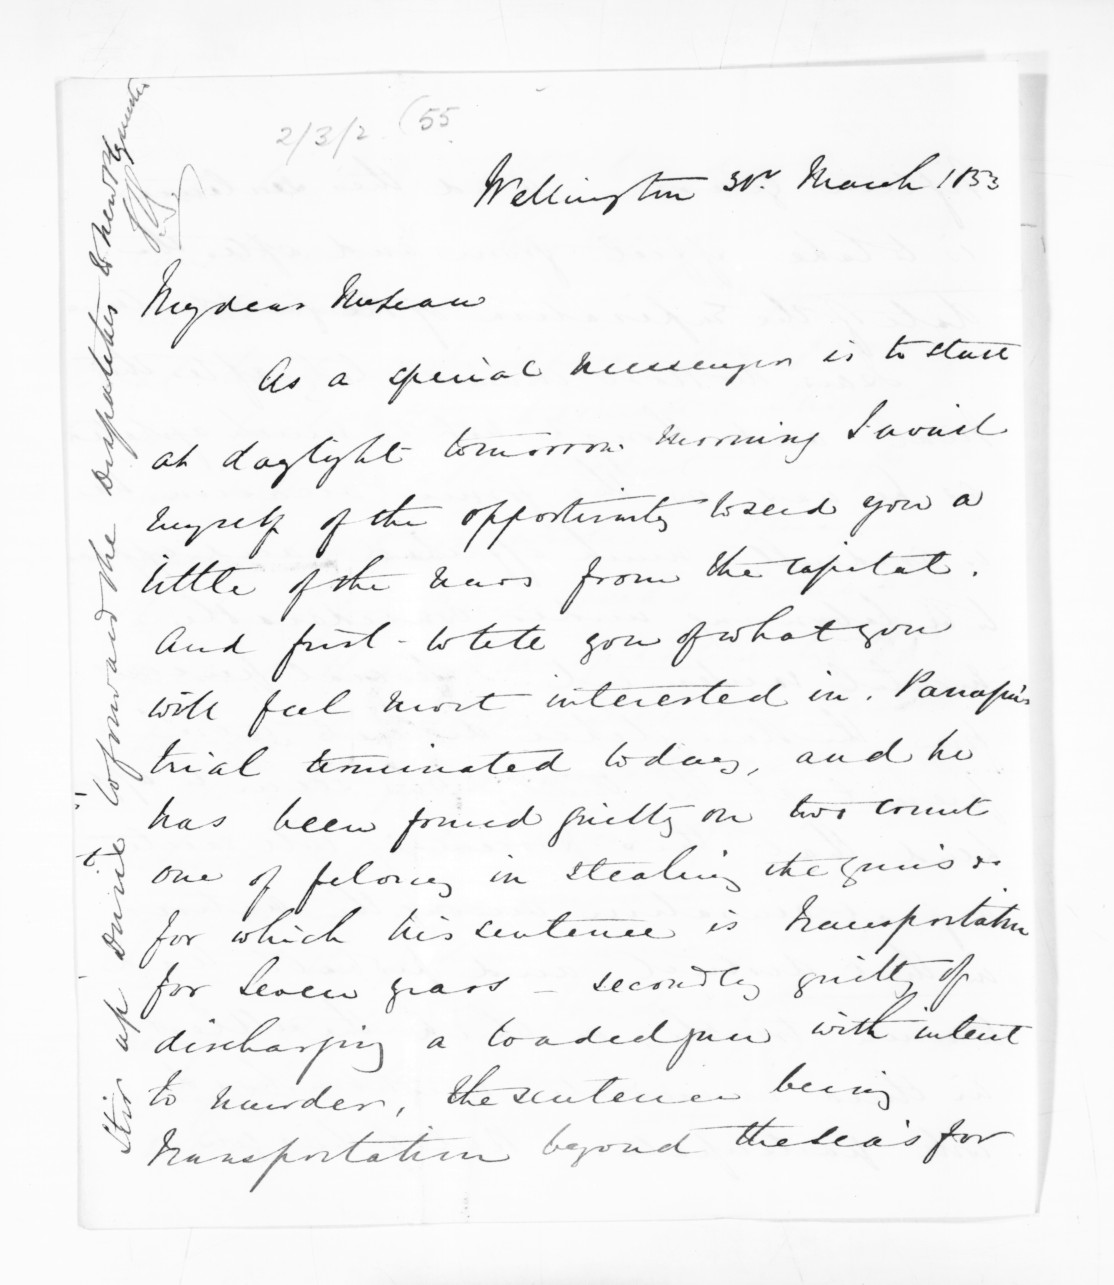 2/3/2 (55
Wellington 31st March 1853
My dear McLean
As a special messenger is to start
at daylight tomorrow morning I avail
myself of the opportunity to send you a
little of the news from the Capital.
And first - to tell you of what you
will feel most interested in. Panapa's
trial terminated to day, and he
has been found guilty on two count
one of felony in stealing the guns &c
for which his sentence is Transportation
for Seven years - secondly guilty of
discharging a loaded gun with intent
to murder, the sentence being
Transportation beyond the Sea's for
Stir up Durie to forward the Dispatches to New